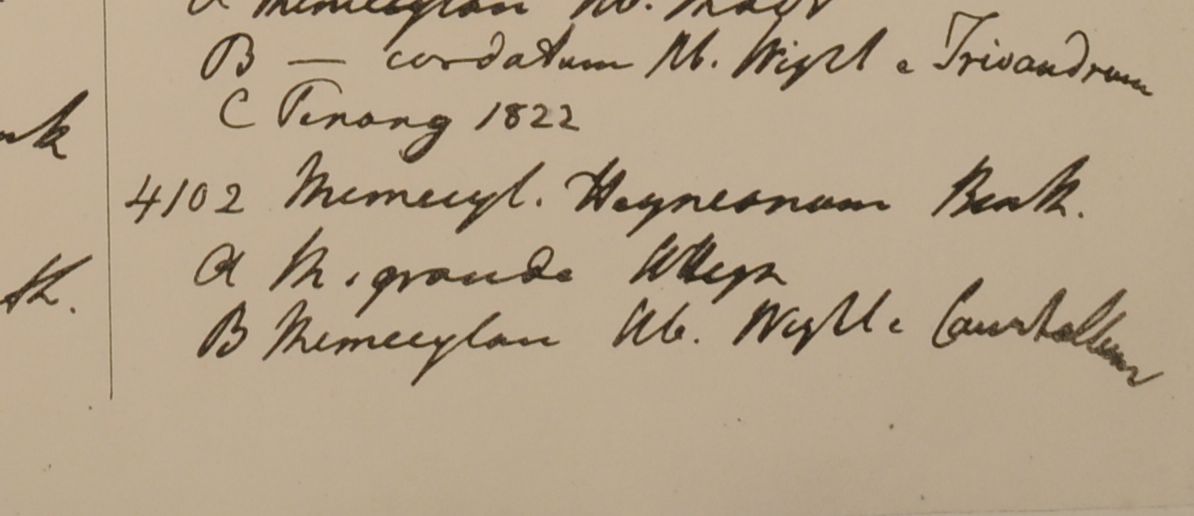 a Memecylon Hb. Madr
B — cordatum Hb. Wight e Trivandrum
C Penang 1822
4102 Memecyl. Heyneanum Benth.
a M. grande Heyn
B Memecylon Hb. Wight e Courtallum
th.